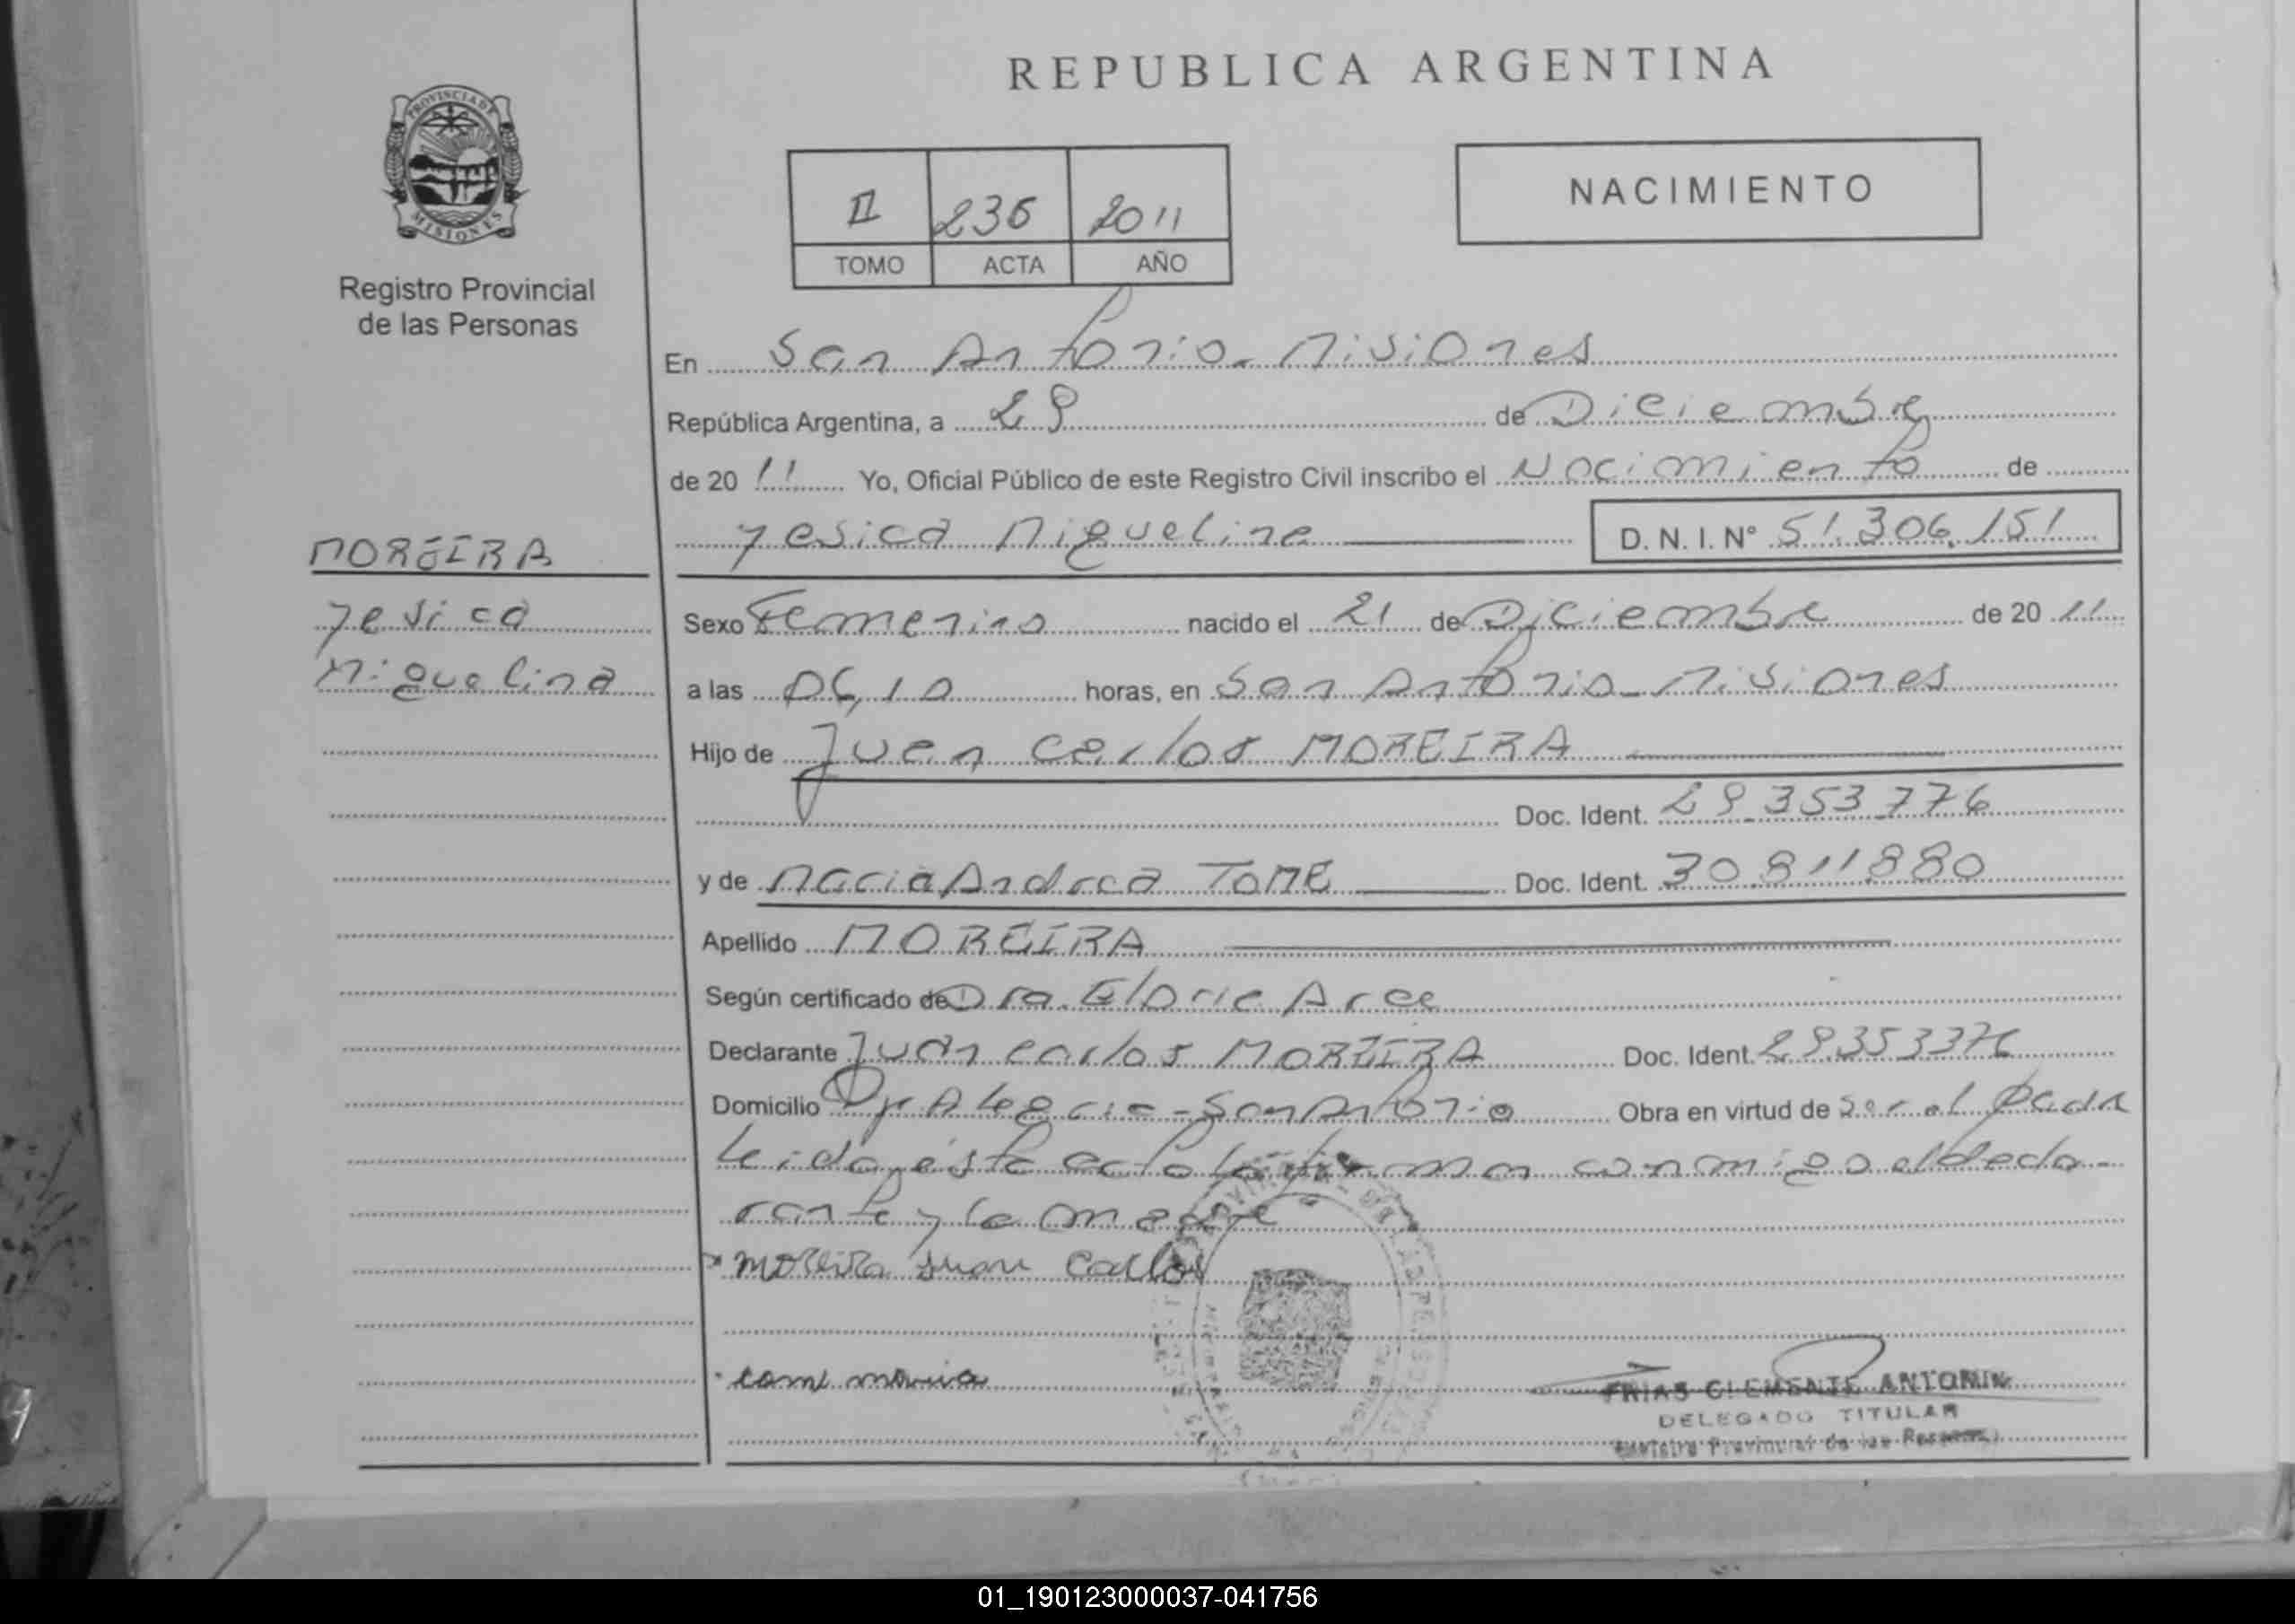 REPUBLICA ARGENTINA
PROVINCIA DE
MISIONES
Registro Provincial
de las Personas
II 236 2011
TOMO ACTA AÑO
NACIMIENTO
En San Antonio - Misiones
República Argentina, a 29 de Diciembre
de 20 11 Yo, Oficial Público de este Registro Civil inscribo el Nacimiento de
Yesica Miguelina D. N. I. N° 51.306.151
MOREIRA
Yesica
Miguelina
Sexo Femenino nacido el 21 de Diciembre de 20 11
a las 06,10 horas, en San Antonio - Misiones
Hijo de Juan Carlos MOREIRA
Doc. Ident. 29.353.776
y de Maria Andrea TOME Doc. Ident. 30.811880
Apellido MOREIRA
Según certificado de Dra. Gloria Arce
Declarante Juan Carlos MOREIRA Doc. Ident. 29.353376
Domicilio San Antonio Obra en virtud de Ser el Padre
Leida esta acta la firman conmigo el decla-
rante y la madre
Moreira Juan Carlos
tome maria
FRIAS CLEMENTE ANTONIO
DELEGADO TITULAR
Registro Provincial de las Personas
01_190123000037-041756